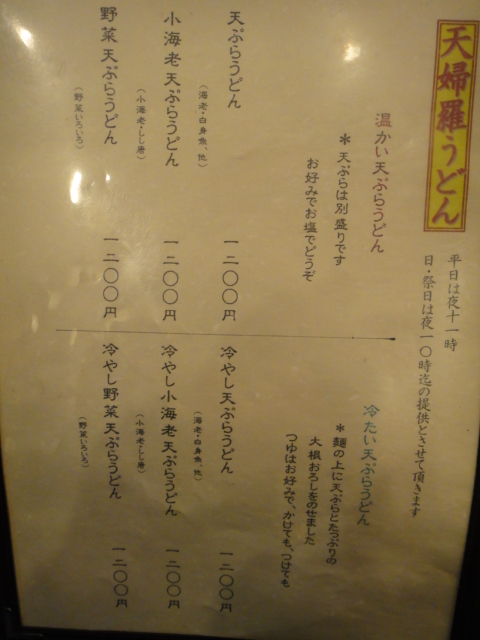 天婦羅うどん
平日は夜十一時
日・祭日は夜一〇時迄の提供とさせて頂きます
温かい天ぷらうどん
＊天ぷらは別盛りです
お好みでお塩でどうぞ
天ぷらうどん 一二〇〇円
（海老・白身魚、他）
小海老天ぷらうどん 一二〇〇円
（小海老・しし唐）
野菜天ぷらうどん 一二〇〇円
（野菜いろいろ）
冷たい天ぷらうどん
＊麺の上に天ぷらとたっぷりの
大根おろしをのせました
つゆはお好みで、かけても、つけても
冷やし天ぷらうどん 一二〇〇円
（海老・白身魚、他）
冷やし小海老天ぷらうどん 一二〇〇円
（小海老・しし唐）
冷やし野菜天ぷらうどん 一二〇〇円
（野菜いろいろ）